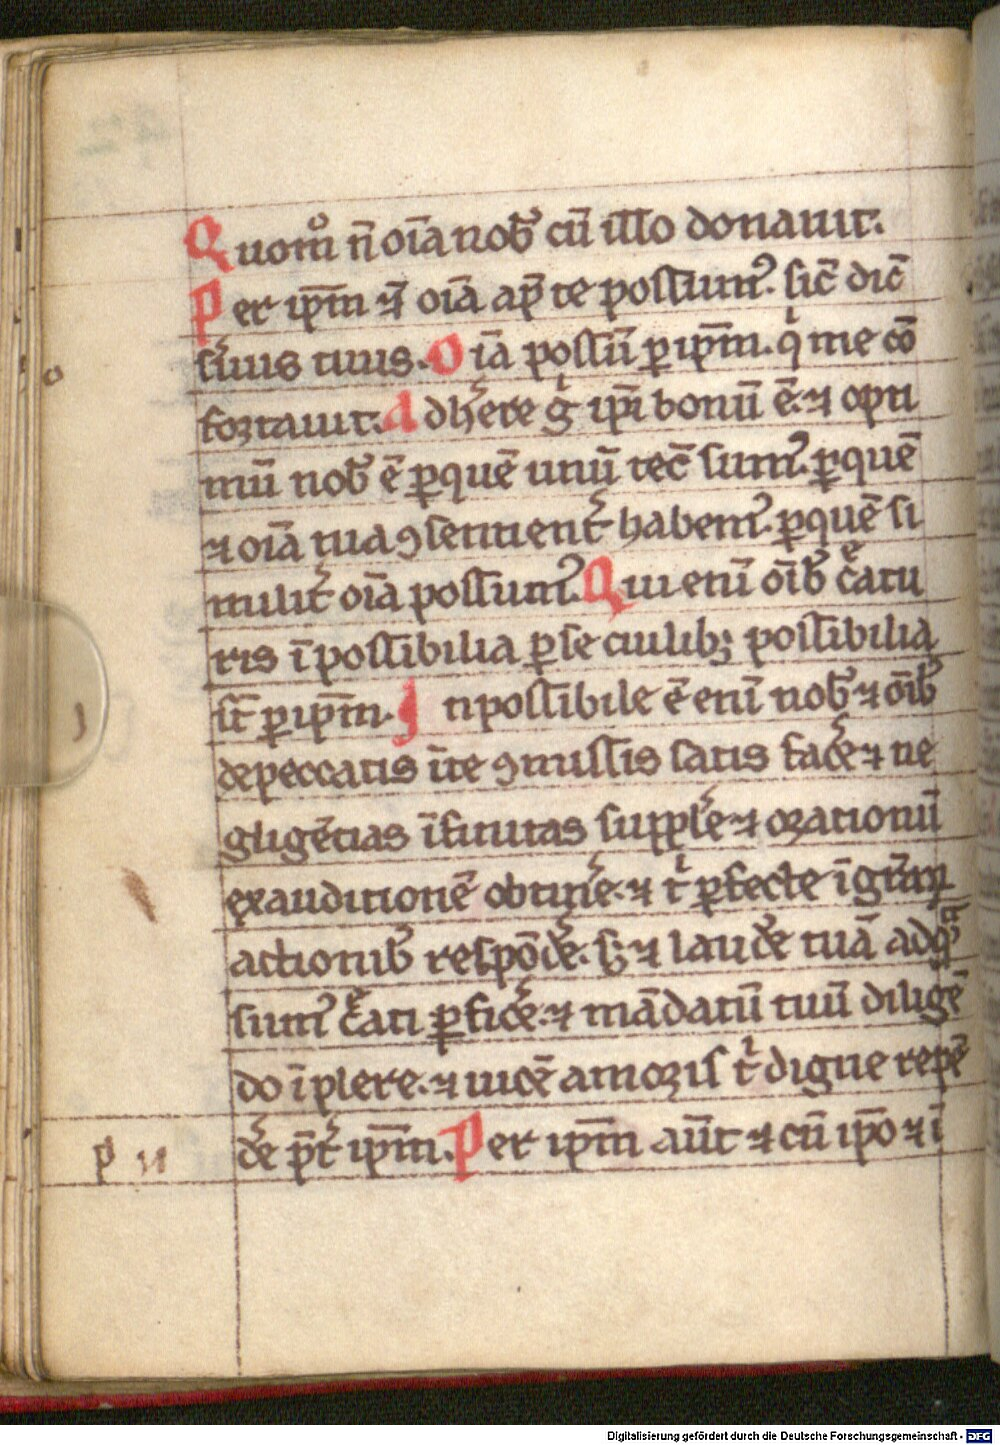 Quom̊ n̄ oīa nob̾ cū illo donauit.
Per ip̄m ⁊ oīa ap̄ te possum᷒. sic̄ dic̄
s̾uus tuus. Oīa possū ꝑ ip̄m. qͥ me cō
fortauit. Adh̾ere gͥ ip̄i bonū ē. ⁊ opti
mū nob̾ ē ꝑ quē unū tec̄ sum᷒. ꝑ quē
⁊ oīa tua ꝯsentient̾ habem᷒. ꝑ quē si
milit̾ oīa possum᷒. Qui enī oīb̾ c̾atu
ris īpossibilia ꝑ se ciulibꝫ possibilia
s̄t ꝑ ip̄m. Inpossibile ē enī nob̾ ⁊ oīb̾
de peccatis ī te ꝯmissis satis fac̾e ⁊ ne
gligētias īfinitas suppl̾e ⁊ orationū
exauditionē obtin̾e. ⁊ tͥ ꝑfecte ī gr̄aꝝ
actionib̾ respōd̾e. sꝫ ⁊ laud̾e tuā ad quā
sum᷒ c̾eati ꝑfic̾e. ⁊ mādatū tuū diligē
do īplere. ⁊ uicē amoris tͥ digne repē
d̾e p̄t̾ ip̄m. Per ip̄m aut̄ ⁊ cū ip̄o ⁊ ī
Digitalisierung gefördert durch die Deutsche Forschungsgemeinschaft - DFG